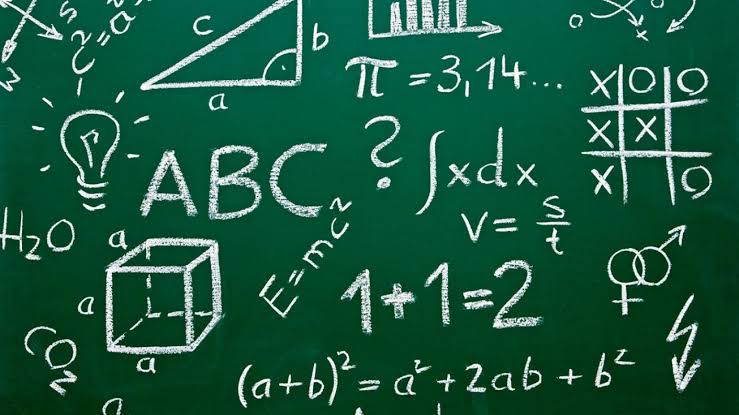 c² = a²
c
b
a
π = 3,14...
X O O
X X
X O
?
ABC
∫xdx
v = s/t
H₂O
a
a
a
E=mc²
1+1=2
CO₂
(a+b)² = a² + 2ab + b²